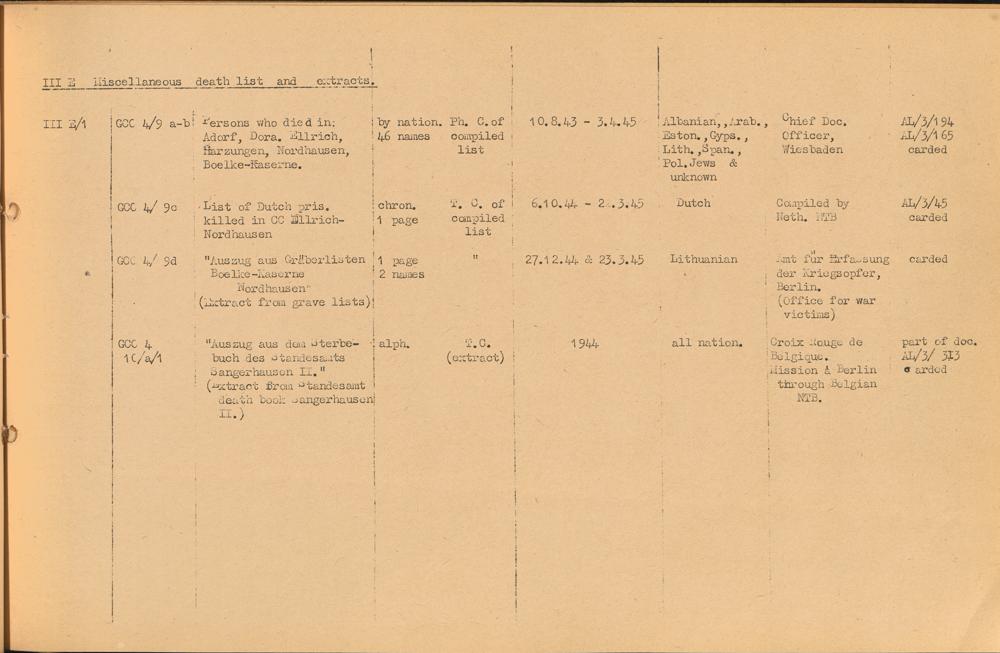 III E Miscellaneous death list and extracts.
III E/1
GCC 4/9 a-b
Persons who died in:
Adorf, Dora. Ellrich,
Harzungen, Nordhausen,
Boelke-Kaserne.
by nation.
46 names
Ph. C. of
compiled
list
10.8.43 - 3.4.45
Albanian,,Arab.,
Eston.,Gyps.,
Lith.,Span.,
Pol.Jews &
unknown
Chief Doc.
Officer,
Wiesbaden
AL/3/194
AL/3/165
carded
GCC 4/ 9c
List of Dutch pris.
killed in CC Ellrich-
Nordhausen
chron.
1 page
T. C. of
compiled
list
6.10.44 -
Dutch
Compiled by
Neth. NTB
AL/3/45
carded
GCC 4/ 9d
"Auszug aus Gräberlisten
Boelke-Kaserne
Nordhausen"
(Extract from grave lists)
1 page
2 names
"
27.12.44 & 23.3.45
Lithuanian
Amt für Erfassung
der Kriegsopfer,
Berlin.
(Office for war
victims)
carded
GCC 4
10/a/1
"Auszug aus dem Sterbe-
buch des Standesamts
Sangerhausen II."
(Extract from Standesamt
death book Sangerhausen
II.)
alph.
T.C.
(extract)
1944
all nation.
Croix Rouge de
Belgique.
Mission à Berlin
through Belgian
NTB.
part of doc.
AL/3/ 313
carded